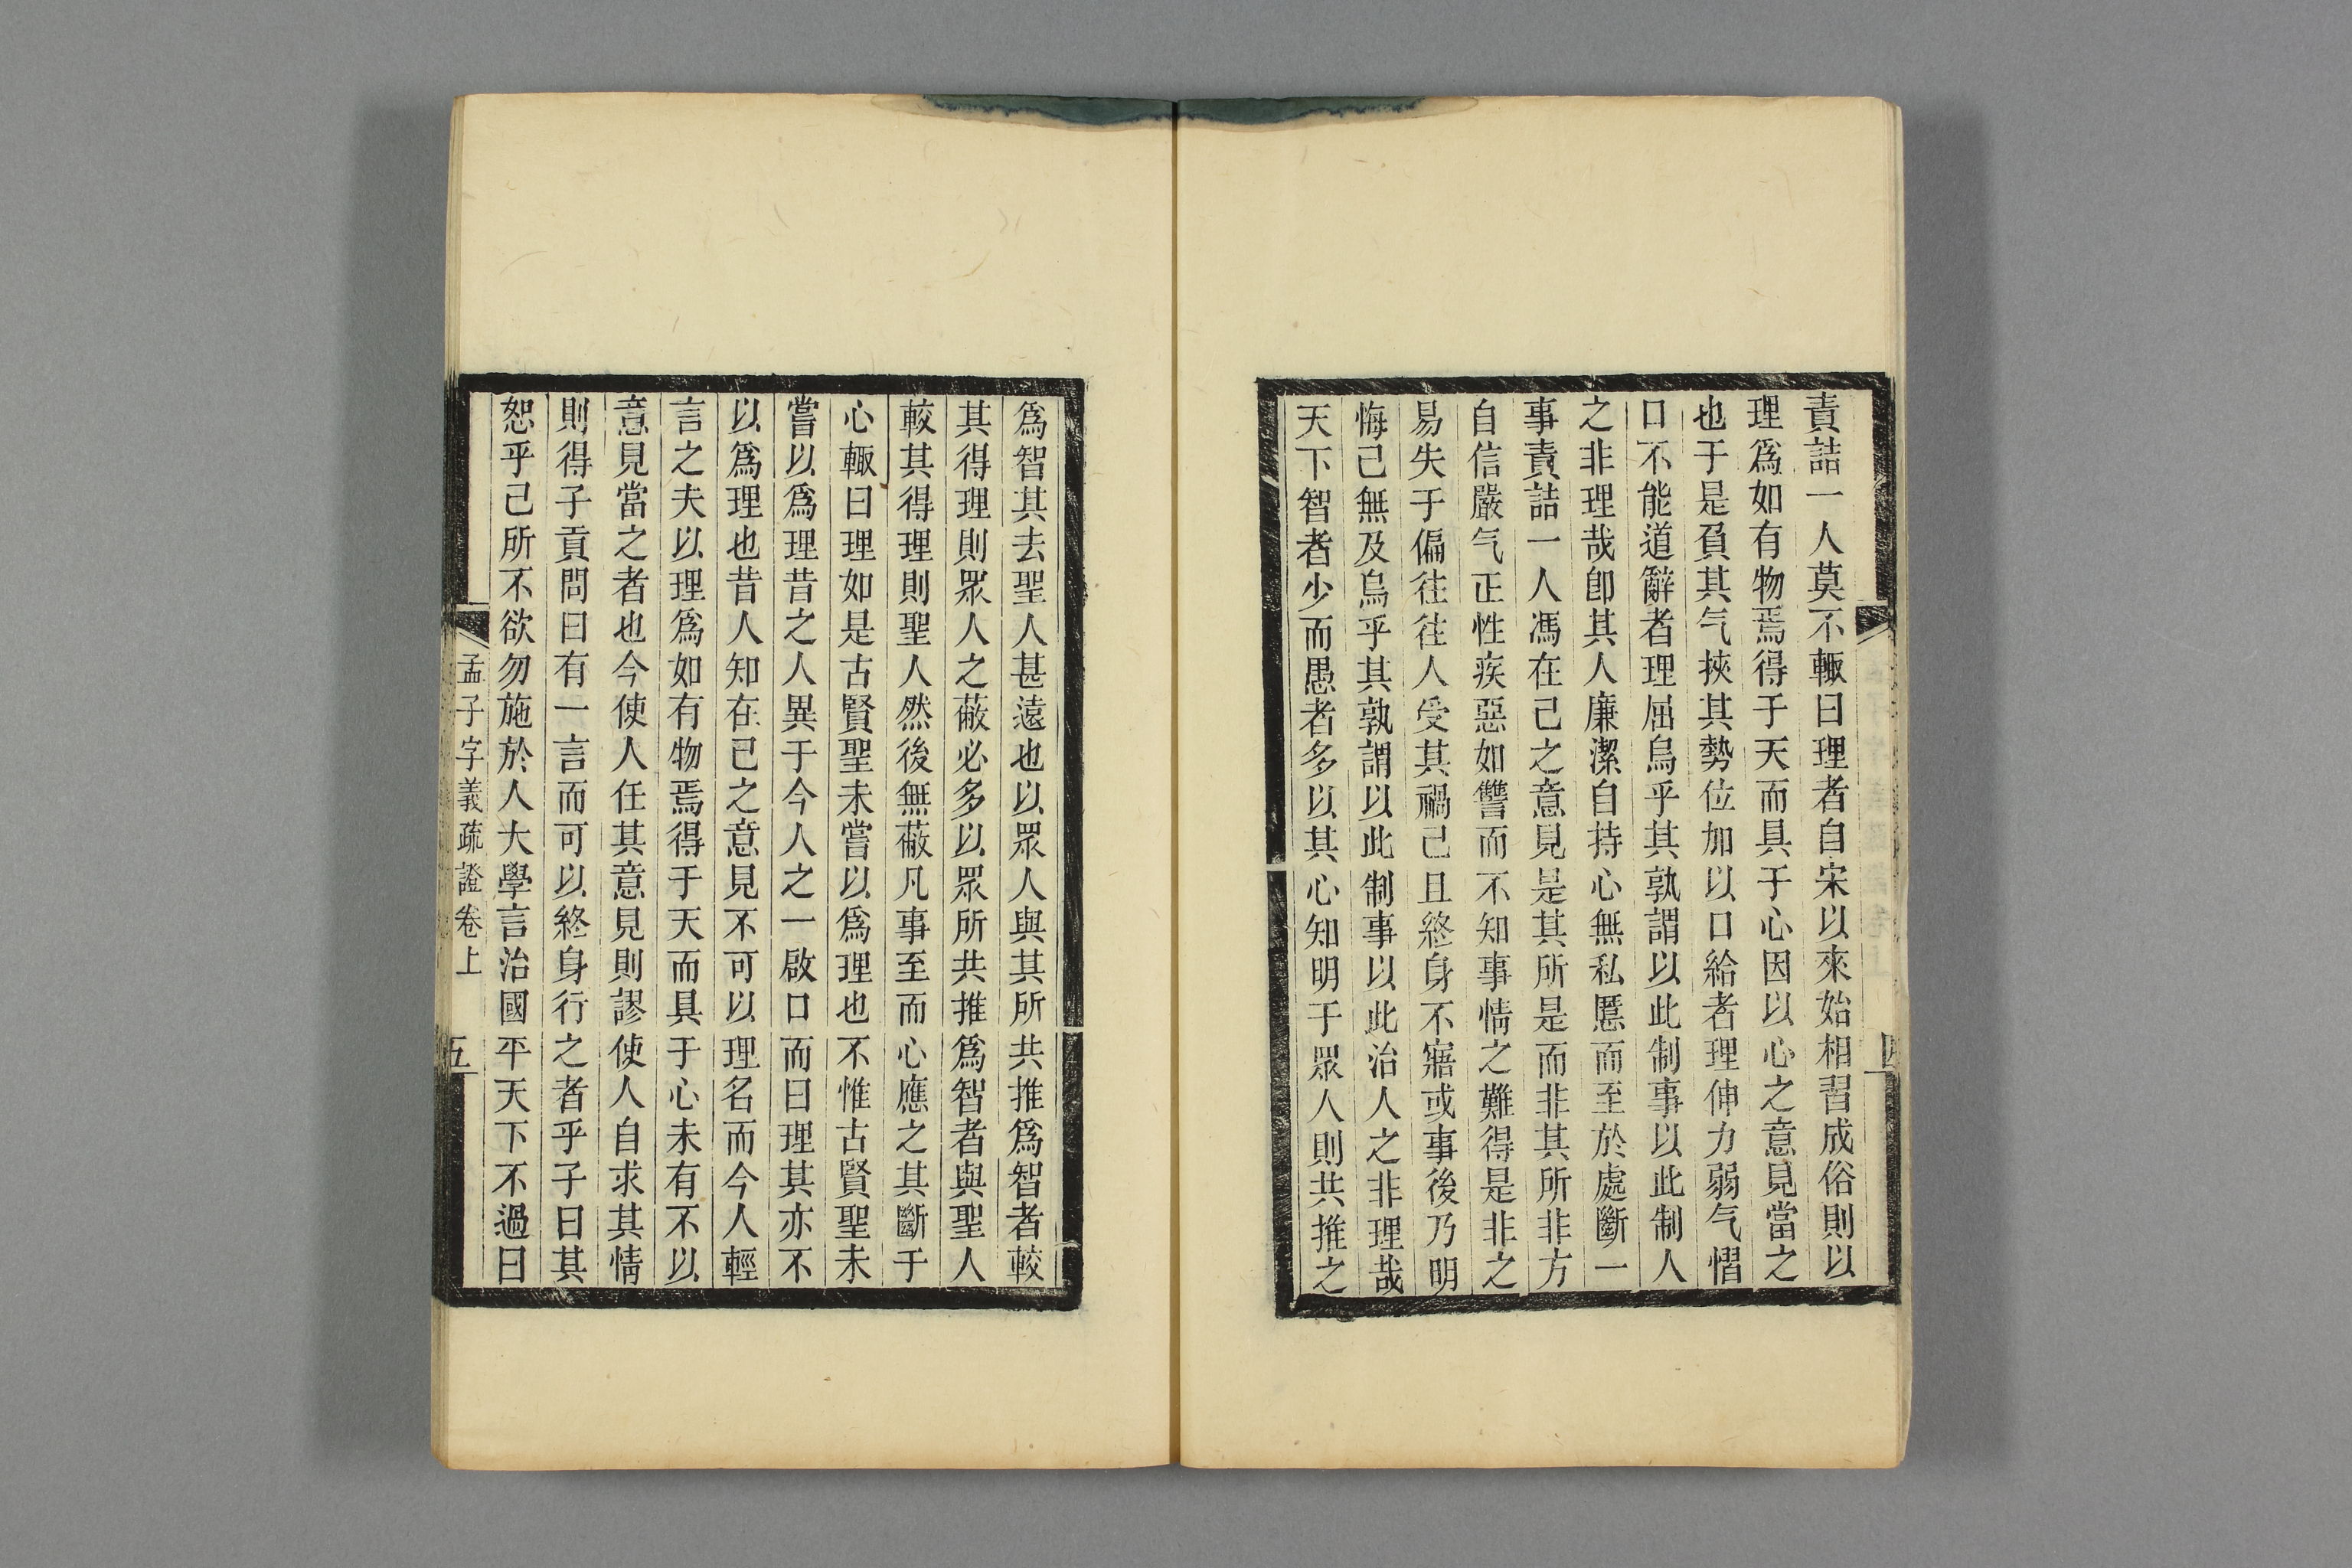 責詰一人莫不輙曰理者自宋以來始相習成俗則以
理爲如有物焉得于天而具于心因以心之意見當之
也于是負其气挾其勢位加以口給者理伸力弱气慴
口不能道辭者理屈烏乎其孰謂以此制事以此制人
之非理哉卽其人廉潔自持心無私慝而至於處斷一
事責詰一人馮在己之意見是其所是而非其所非方
自信嚴气正性疾惡如讐而不知事情之難得是非之
易失于偏往往人受其禍己且終身不寤或事後乃明
悔己無及烏乎其孰謂以此制事以此治人之非理哉
天下智者少而愚者多以其心知明于眾人則共推之
爲智其去聖人甚遠也以眾人與其所共推爲智者較
其得理則眾人之蔽必多以眾所共推爲智者與聖人
較其得理則聖人然後無蔽凡事至而心應之其斷于
心輙曰理如是古賢聖未嘗以爲理也不惟古賢聖未
嘗以爲理昔之人異于今人之一啟口而曰理其亦不
以爲理也昔人知在己之意見不可以理名而今人輕
言之夫以理爲如有物焉得于天而具于心未有不以
意見當之者也今使人任其意見則謬使人自求其情
則得子貢問曰有一言而可以終身行之者乎子曰其
恕乎己所不欲勿施於人大學言治國平天下不過曰
孟子字義疏證卷上
五